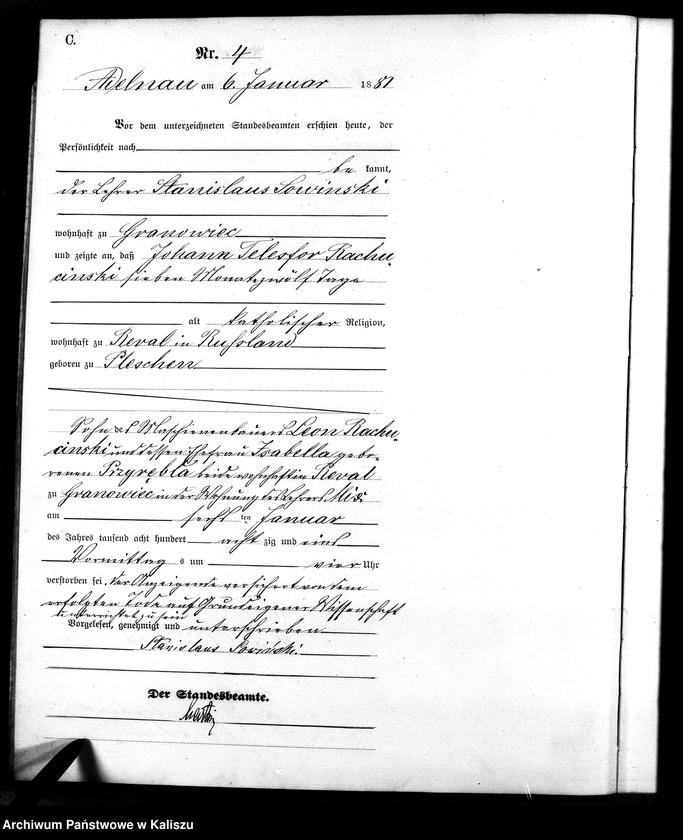 C.
Nr. 4
Adelnau am 6. Januar 1881
Vor dem unterzeichneten Standesbeamten erschien heute, der
Persönlichkeit nach
be kannt,
der Lehrer Stanislaus Sowinski
wohnhaft zu Granowiec
und zeigte an, daß Johann Telesfor Rachu-
cinski sieben Monate zwölf Tage
alt katholischer Religion,
wohnhaft zu Reval in Russland
geboren zu Pleschen
Sohn des Maschienenbauers Leon Rachu-
cinski und dessen Ehefrau Isabella gebo-
renen Przyrębla beide wohnhaft in Reval
zu Granowiec in der Wohnung des Lehrers
am sechs ten Januar
des Jahres tausend acht hundert acht zig und eins
Vormittag s um vier Uhr
verstorben sei. Der Anzeigende versichert von dem
erfolgten Tode auf Grund eigener Wissenschaft
unterrichtet zu sein
Vorgelesen, genehmigt und unterschrieben
Stanislaus Sowiński.
Der Standesbeamte.
Archiwum Państwowe w Kaliszu